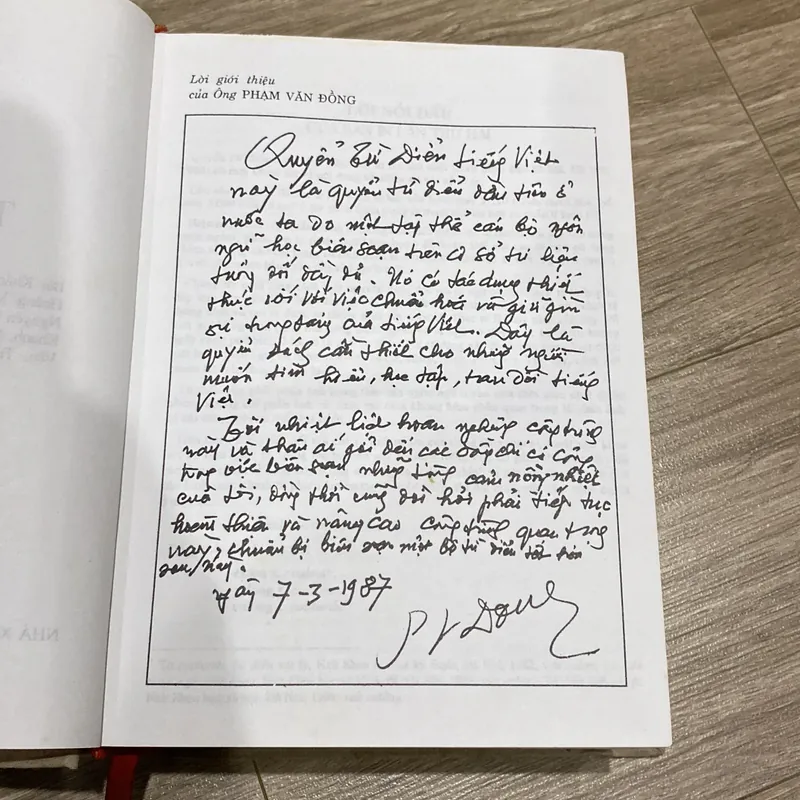 Lời giới thiệu
của Ông PHẠM VĂN ĐỒNG
Quyển Từ Điển tiếng Việt
này là quyển từ điển đầu tiên ở
nước ta do một tập thể cán bộ ngôn
ngữ học biên soạn trên cơ sở tư liệu
tương đối đầy đủ. Nó có tác dụng thiết
thực đối với việc chuẩn hoá và giữ gìn
sự trong sáng của tiếng Việt. Đây là
quyển sách cần thiết cho những người
muốn tìm hiểu, học tập, trau dồi tiếng
Việt.
Tôi nhiệt liệt hoan nghênh công trình
này và thân ái gởi đến các đồng chí có công
trong việc biên soạn những tình cảm nồng nhiệt
của tôi, đồng thời cũng đòi hỏi phải tiếp tục
hoàn thiện và nâng cao công trình quan trọng
này, chuẩn bị biên soạn một bộ từ điển tốt hơn
sau này.
ngày 7-3-1987
PVDong
NHÀ X